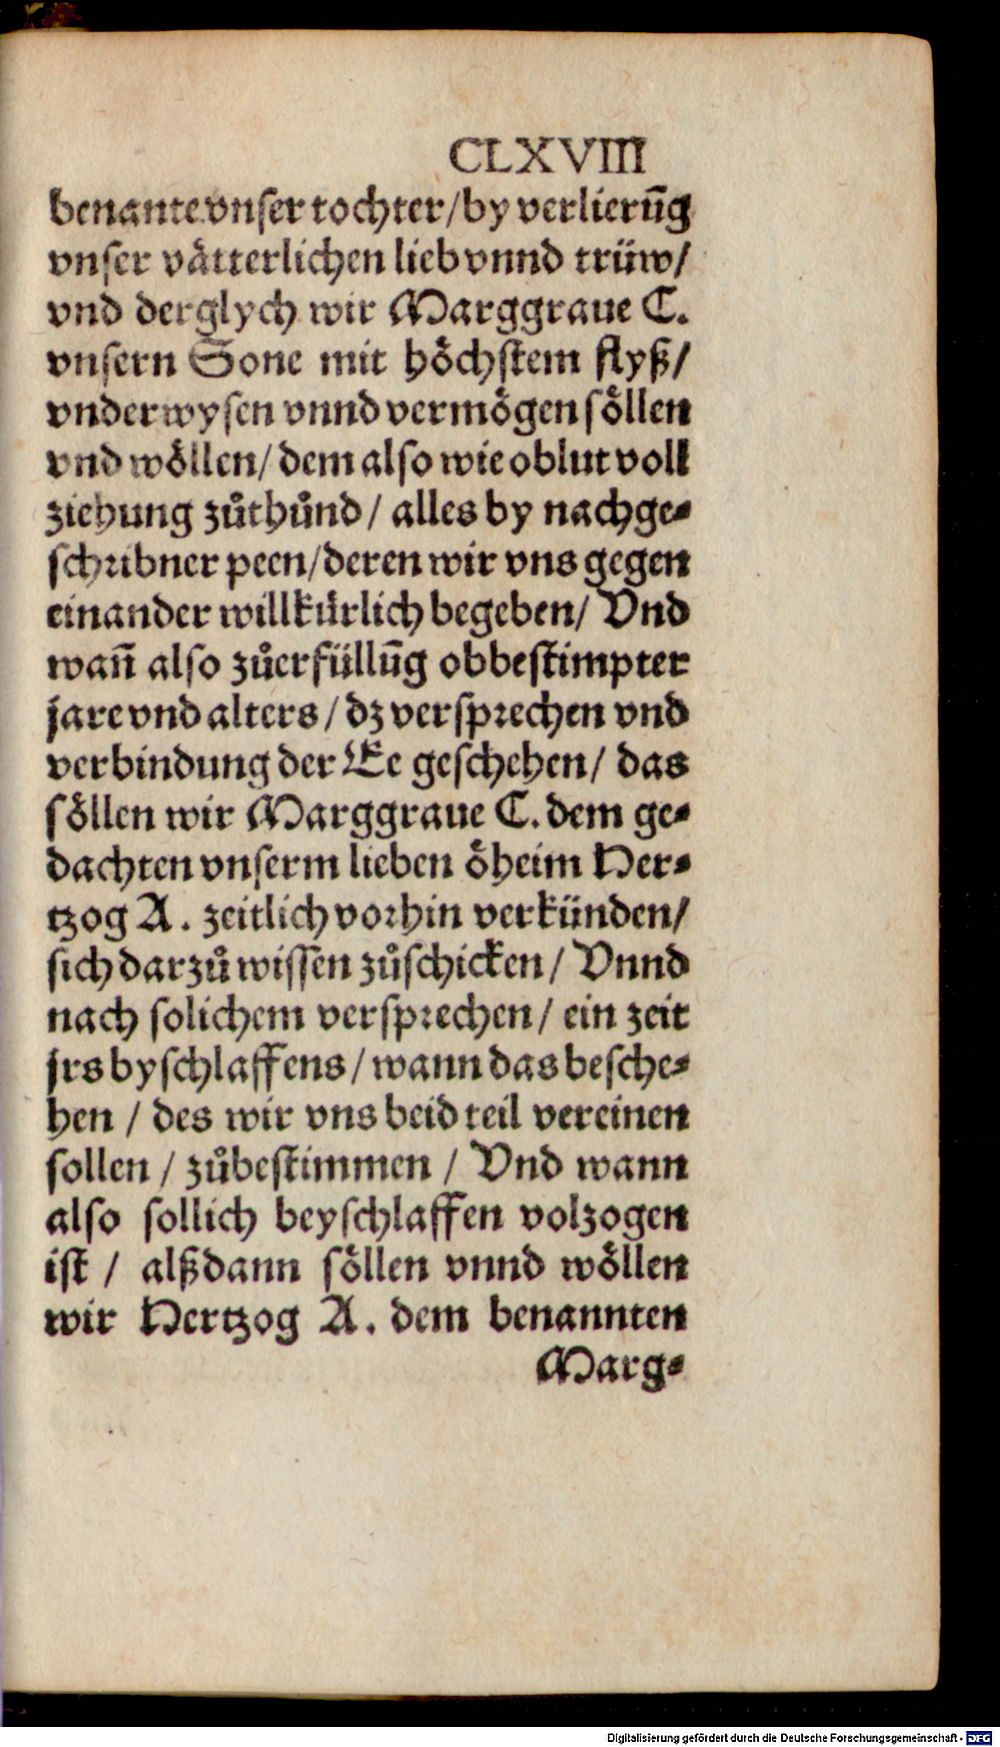 CLXVIII
benante vnser tochter/by verlierūg
vnser vätterlichen lieb vnnd trüw/
vnd derglych wir Marggraue C.
vnsern Sone mit höchstem flyß/
vnderwysen vnnd vermögen söllen
vnd wöllen/ dem also wie oblut voll
ziehung zůthůnd / alles by nachge⸗
schribner peen/deren wir vns gegen
einander willkürlich begeben/ Vnd
wañ also zůerfüllūg obbestimpter
jare vnd alters / dz versprechen vnd
verbindung der Ee geschehen/ das
söllen wir Marggraue C. dem ge⸗
dachten vnserm lieben öheim Her⸗
tzog A. zeitlich vorhin verkünden/
sich darzů wissen zůschicken / Vnnd
nach solichem versprechen / ein zeit
jrs byschlaffens / wann das besche⸗
hen / des wir vns beid teil vereinen
sollen / zůbestimmen / Vnd wann
also sollich beyschlaffen volzogen
ist / alßdann söllen vnnd wöllen
wir Hertzog A. dem benannten
Marg⸗
Digitalisierung gefördert durch die Deutsche Forschungsgemeinschaft - DFG